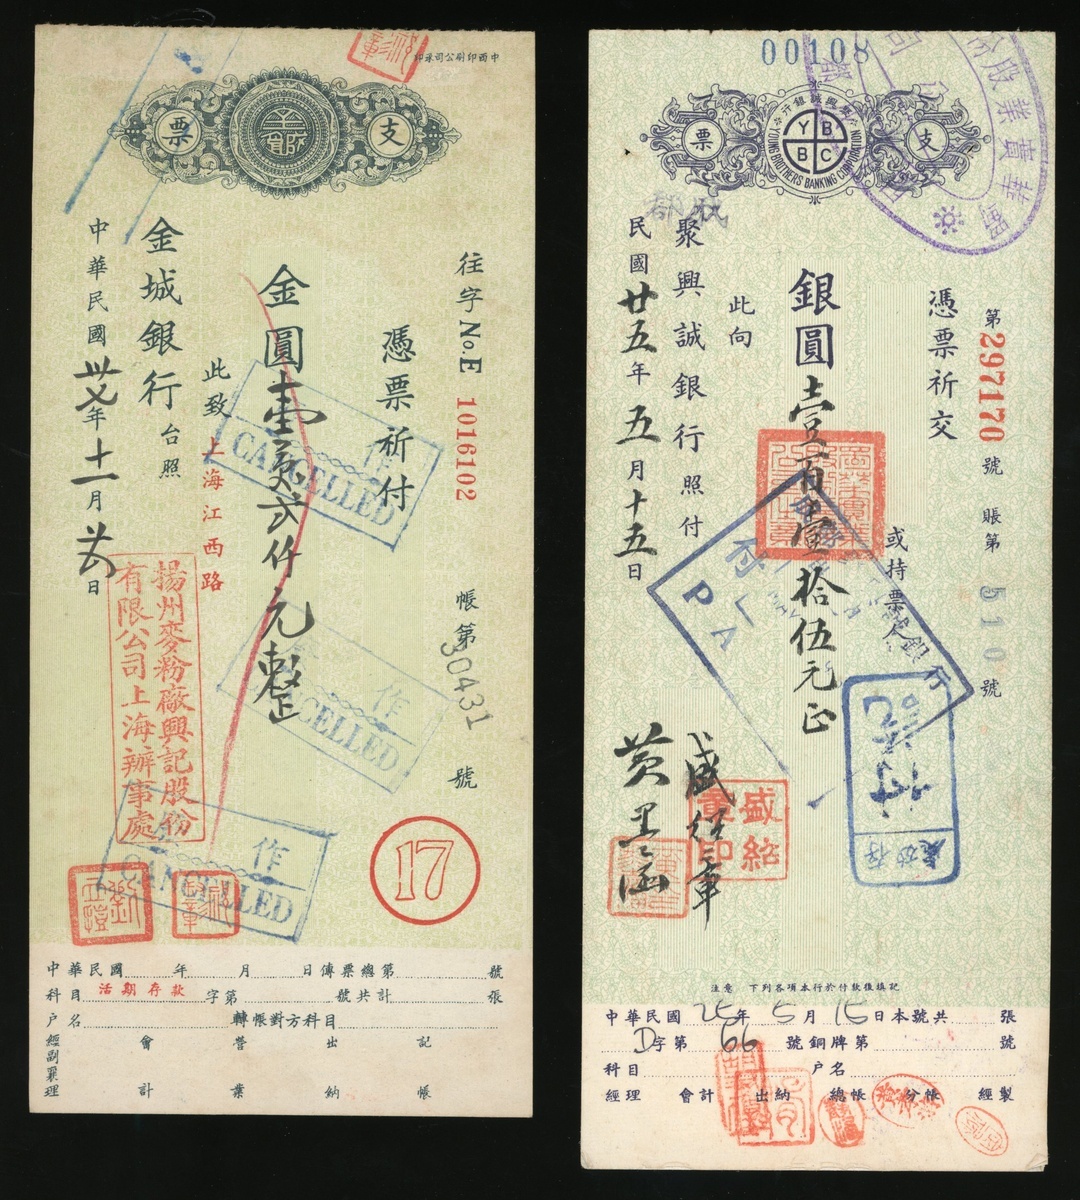 中西印刷公司承印
支票
往字No.E 1016102
帳第 30431 號
憑票祈付
金圓壹貳仟元整
此致
上海江西路
金城銀行台照
中華民國卅七年十一月 日
揚州麥粉廠興記股份
有限公司上海辦事處
作
CANCELLED
作
CANCELLED
作
CANCELLED
17
中華民國 年 月 日傳票總第 號
科目 活期存款 字第 號共計 張
戶名 轉帳對方科目
經副襄理 會計 營業 出納 記帳
00108
支票
聚興誠銀行
YOUNG BROTHERS BANKING CORPORATION
YBBC
第297170號 賬第 510 號
憑票祈交
或持票人
銀圓壹百壹拾伍元正
此向
聚興誠銀行照付
民國廿五年五月十五日
付
PA
盛紹章
盛紹章印
黃墨涵
注意 下列各項本行於付款後填記
中華民國25年5月15日本號共 張
D字第66號銅牌第 號
科目 戶名
經理 會計 出納 總帳 分帳 經製